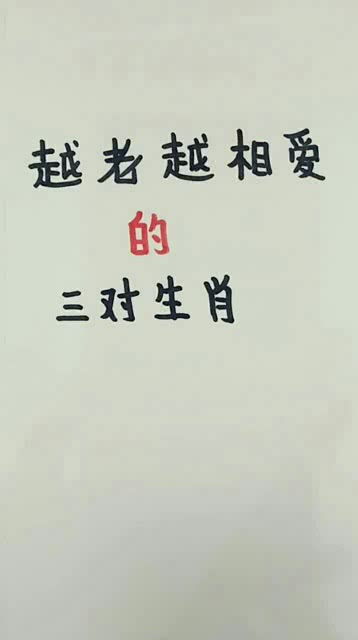 越老越相爱
的
三对生肖